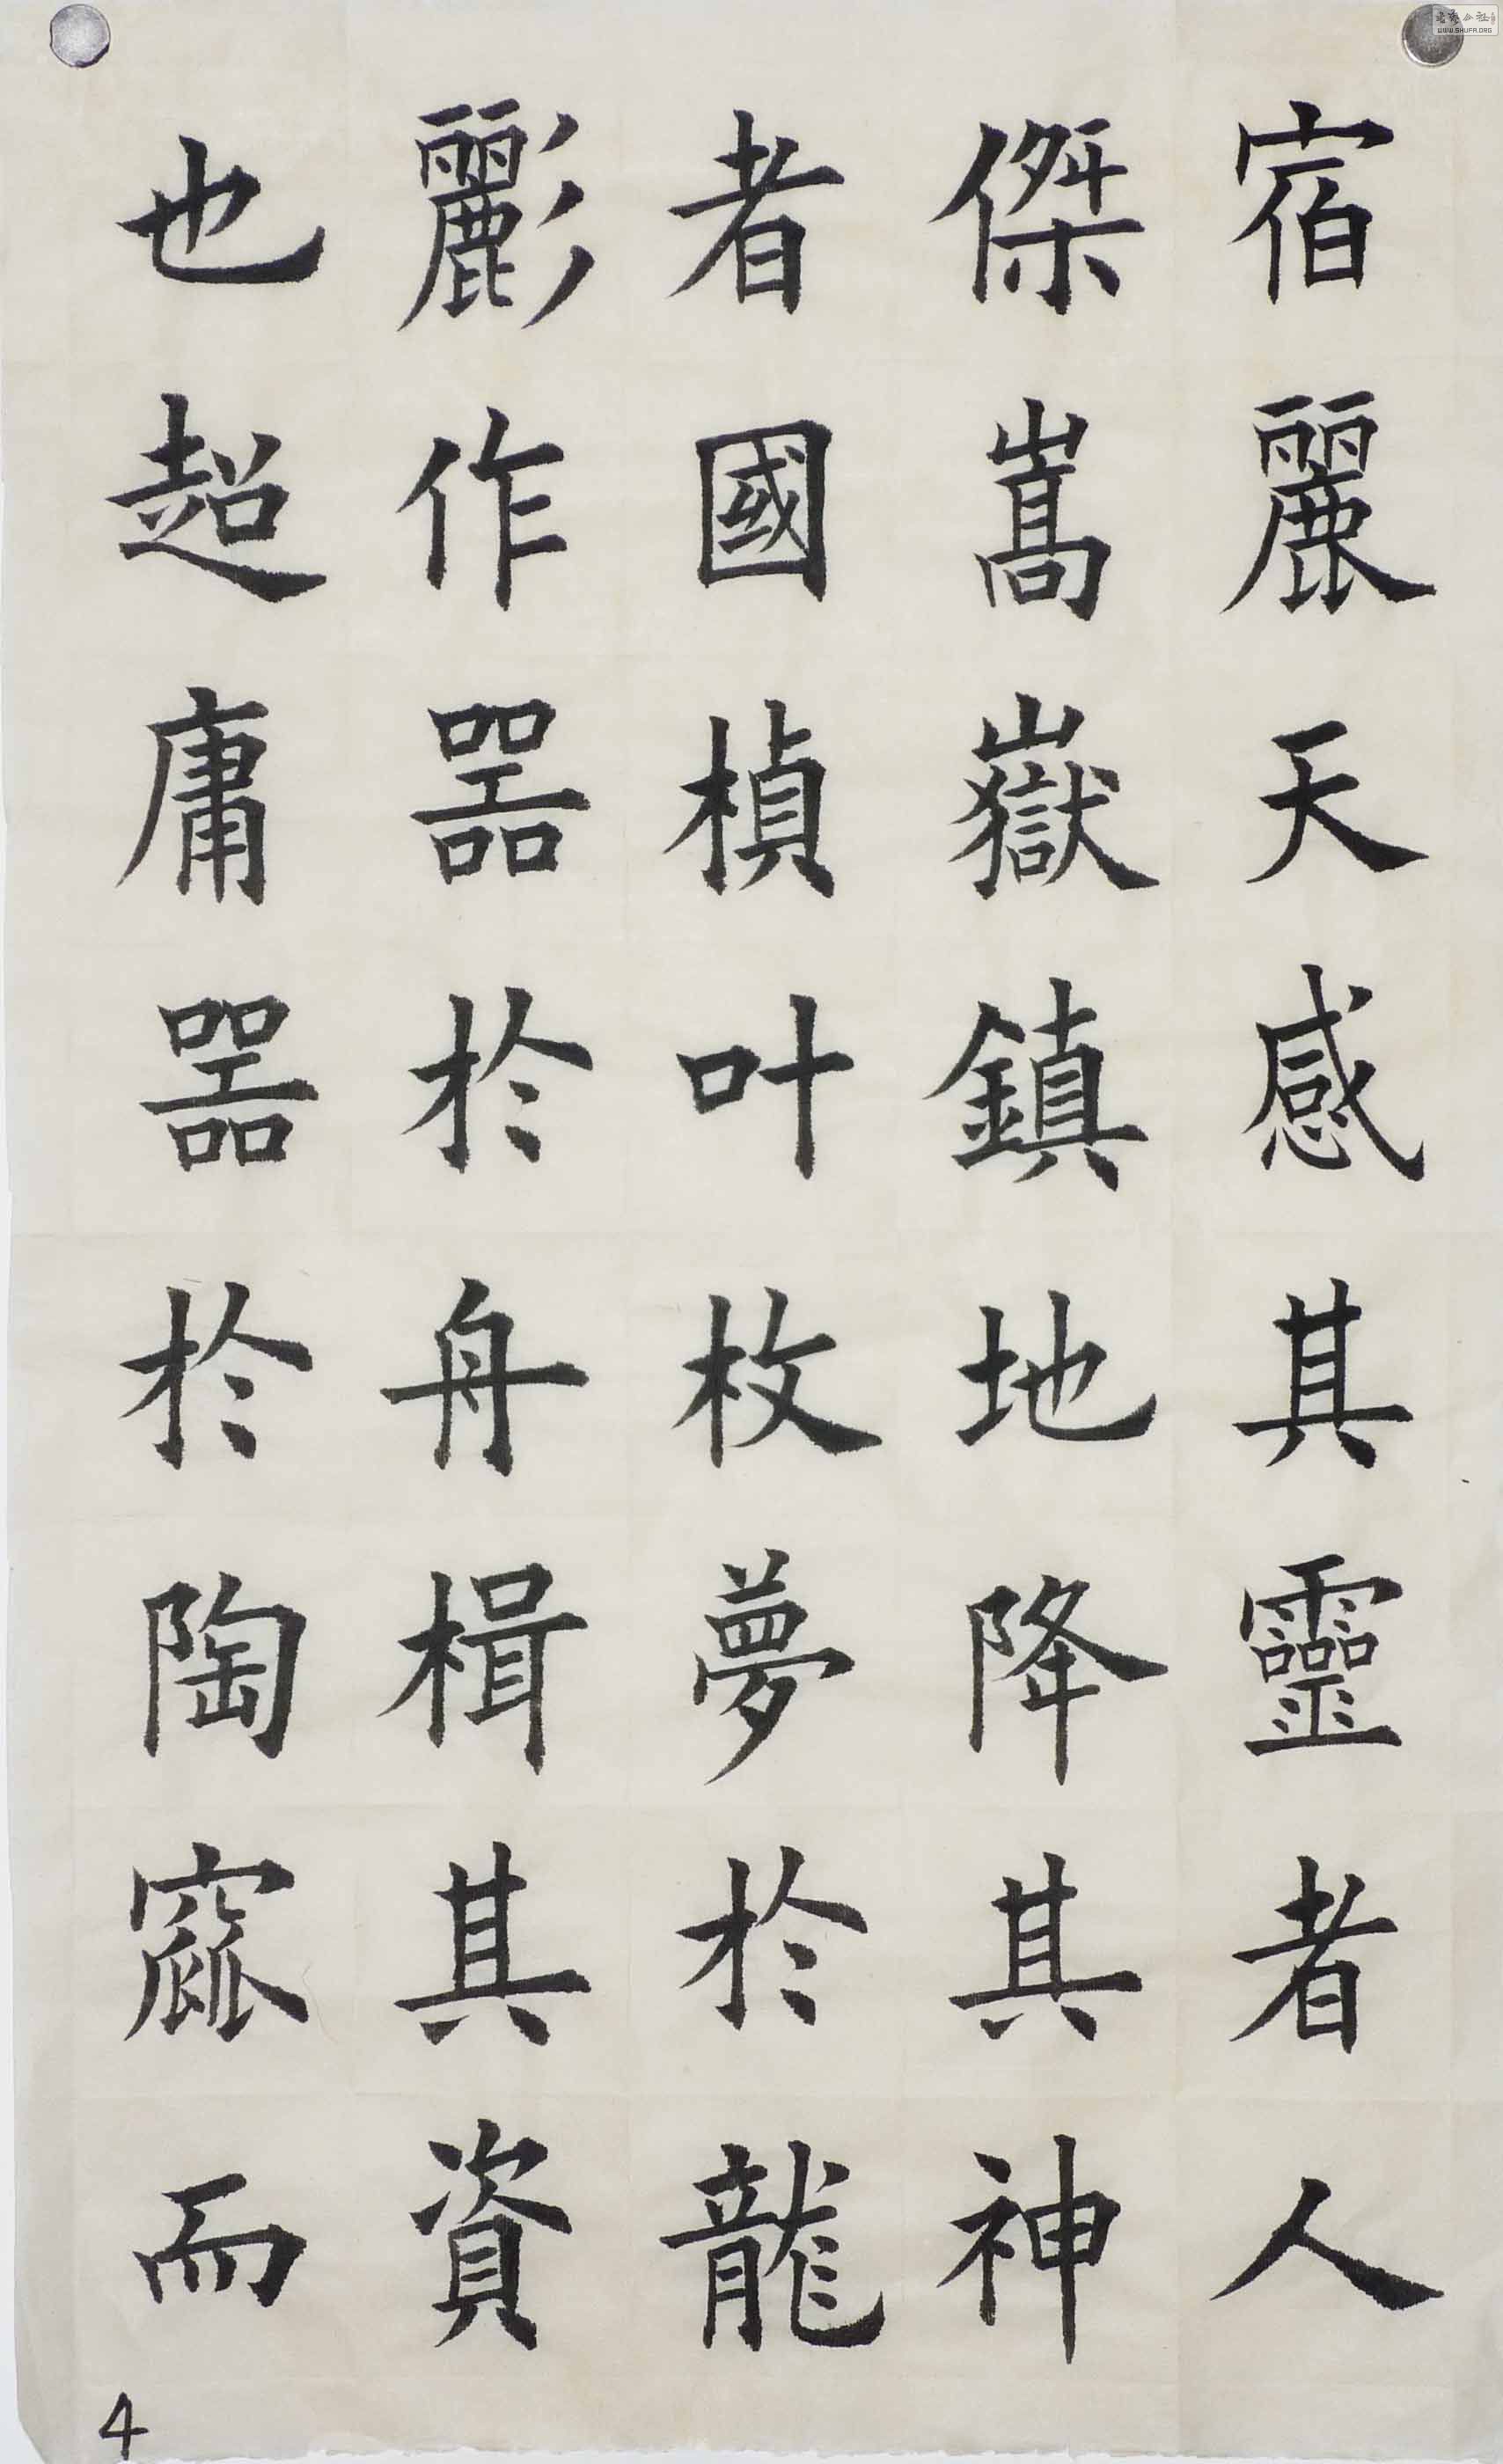 宿麗天感其靈者人
傑嵩嶽鎮地降其神
者國楨叶枚夢於龍
彲作噐於舟楫其資
也超庸噐於陶窳而
4